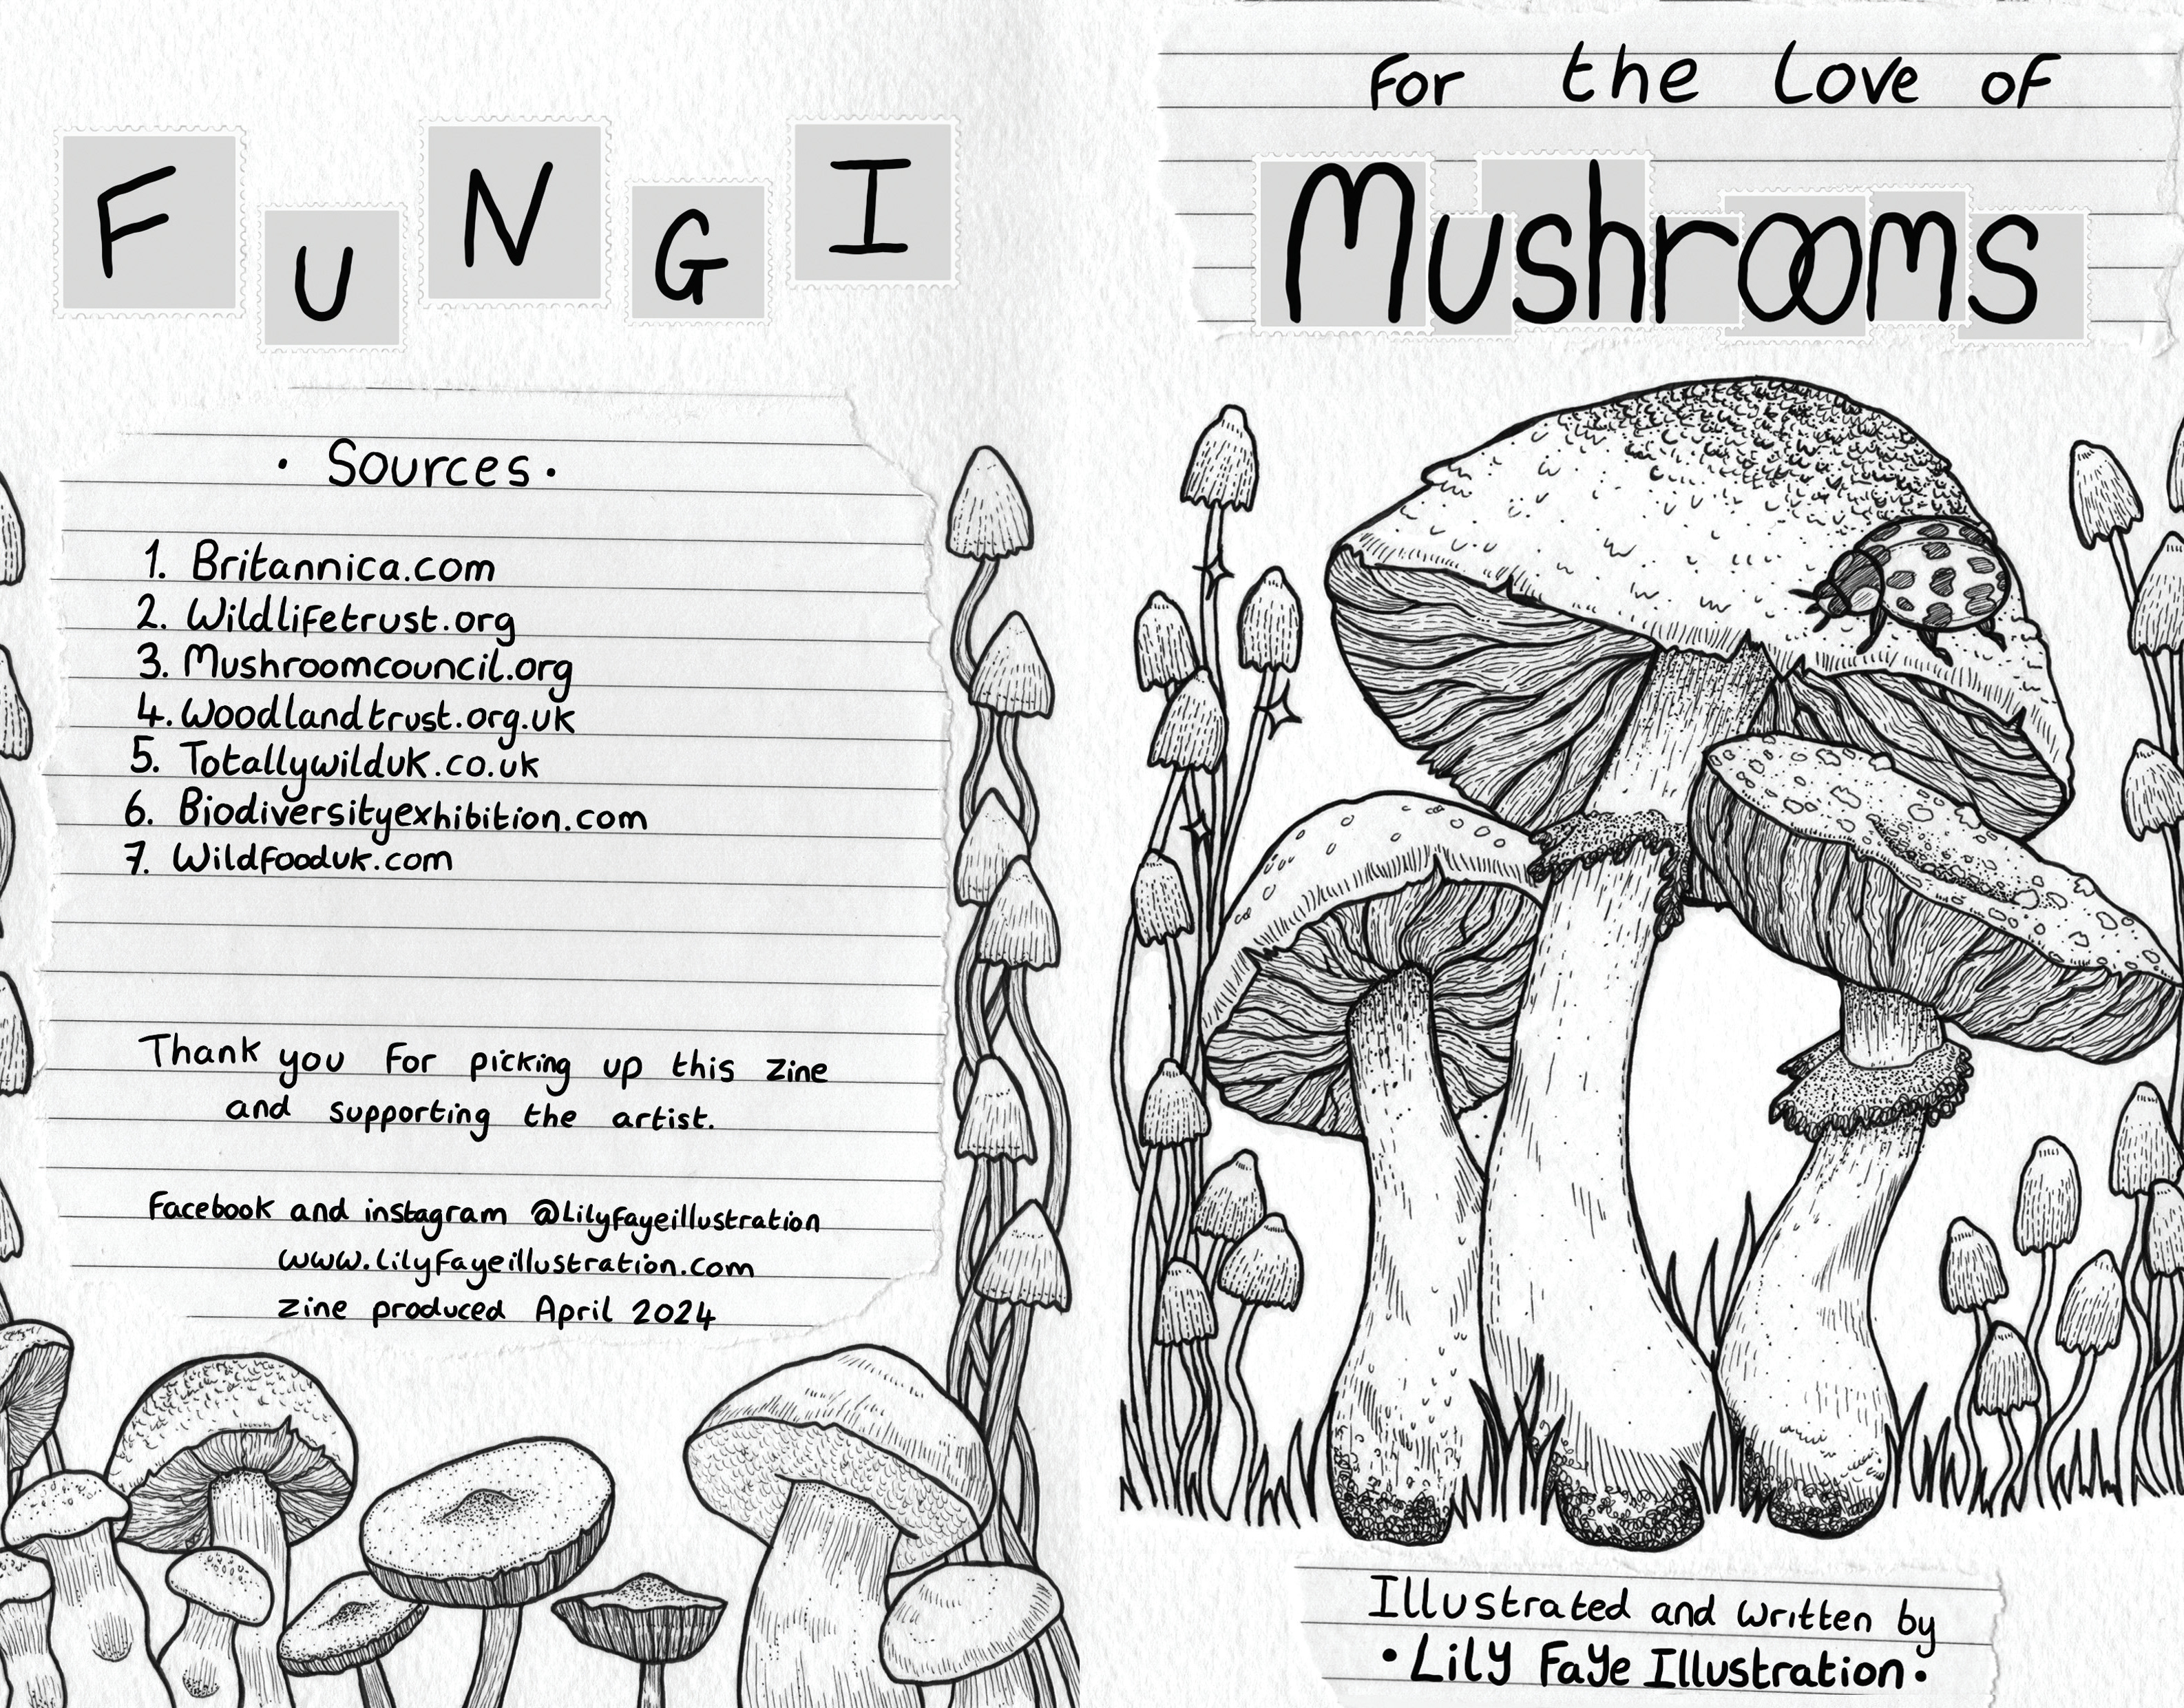 FUNGI
· Sources ·
1. Britannica.com
2. Wildlifetrust.org
3. Mushroomcouncil.org
4. Woodlandtrust.org.uk
5. Totallywilduk.co.uk
6. Biodiversityexhibition.com
7. Wildfooduk.com
Thank you for picking up this zine
and supporting the artist.
Facebook and instagram @Lilyfayeillustration
www.lilyfayeillustration.com
zine produced April 2024
For the Love of
Mushrooms
Illustrated and written by
• Lily Faye Illustration •